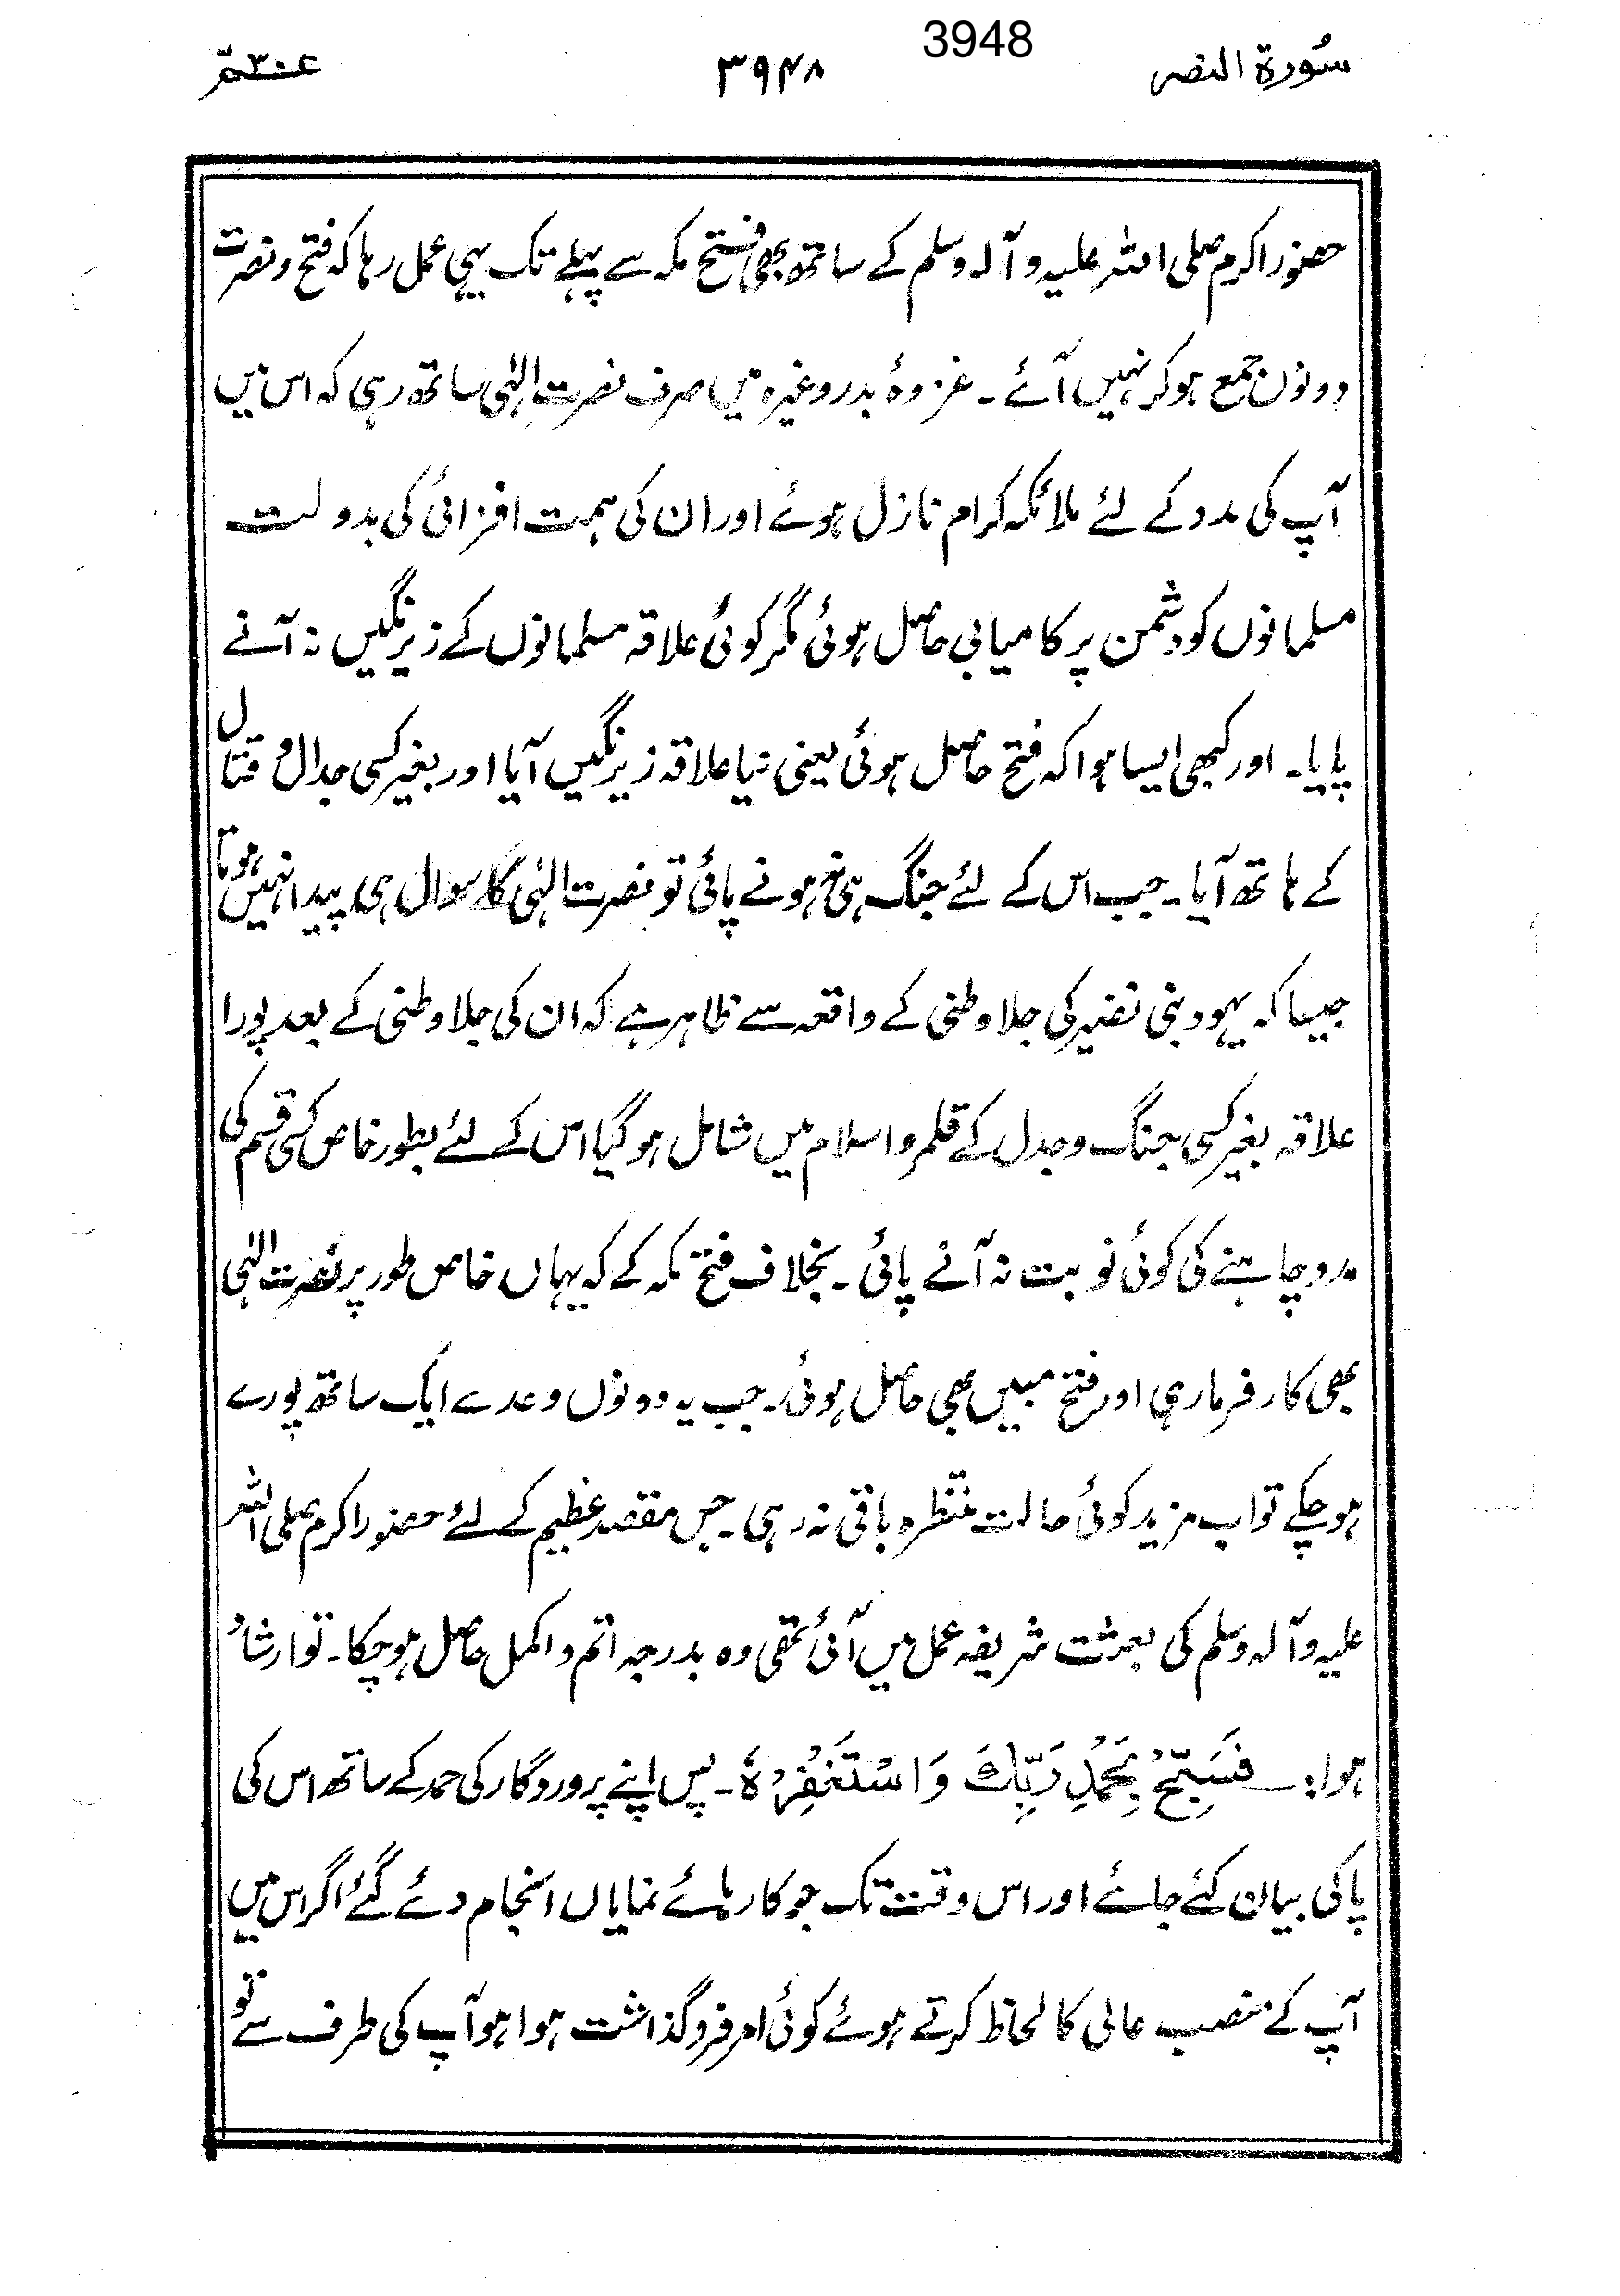 3948
سُورۃ النصر ۳۹۴۸ عمّ ۳۰
حضور اکرم صلی اللہ علیہ و آلہ وسلم کے ساتھ بھی فتح مکہ سے پہلے تک یہی عمل رہا کہ فتح و نصرت
دونوں جمع ہو کر نہیں آئے ۔ غزوۂ بدر وغیرہ میں صرف نصرتِ الٰہی ساتھ رہی کہ اس میں
آپ کی مدد کے لئے ملائکہ کرام نازل ہوئے اور ان کی ہمت افزائی کی بدولت
مسلمانوں کو دشمن پر کامیابی حاصل ہوئی مگر کوئی علاقہ مسلمانوں کے زیر نگیں نہ آنے
پایا۔ اور کبھی ایسا ہوا کہ فتح حاصل ہوئی یعنی نیا علاقہ زیر نگیں آیا اور بغیر کسی جدال و قتال
کے ہاتھ آیا۔ جب اس کے لئے جنگ ہی نہ ہونے پائی تو نصرت الٰہی کا سوال ہی پیدا نہیں ہوتا
جیسا کہ یہود بنی نضیر کی جلا وطنی کے واقعہ سے ظاہر ہے کہ ان کی جلا وطنی کے بعد پورا
علاقہ بغیر کسی جنگ و جدل کے قلمرو اسلام میں شامل ہو گیا اس کے لئے بطور خاص کسی قسم کی
مدد چاہنے کی کوئی نوبت نہ آنے پائی ۔ بخلاف فتح مکہ کے کہ یہاں خاص طور پر نُصرتِ الٰہی
بھی کار فرما رہی اور فتح مبین بھی حاصل ہوئی۔ جب یہ دونوں وعدے ایک ساتھ پورے
ہو چکے تو اب مزید کوئی حالت منتظرہ باقی نہ رہی ۔ جس مقصد عظیم کے لئے حضور اکرم صلی اللہ
علیہ و آلہ وسلم کی بعثت شریفہ عمل میں آئی تھی وہ بدرجہ اتم و اکمل حاصل ہو چکا۔ تو ارشاد
ہوا :۔ فَسَبِّحْ بِحَمْدِ رَبِّكَ وَاسْتَغْفِرْهُ ۔ پس اپنے پروردگار کی حمد کے ساتھ اس کی
پاکی بیان کئے جائے اور اس وقت تک جو کارہائے نمایاں انجام دئے گئے اگر اس میں
آپ کے منصب عالی کا لحاظ کرتے ہوئے کوئی امر فرو گذاشت ہوا ہو آپ کی طرف سے تو